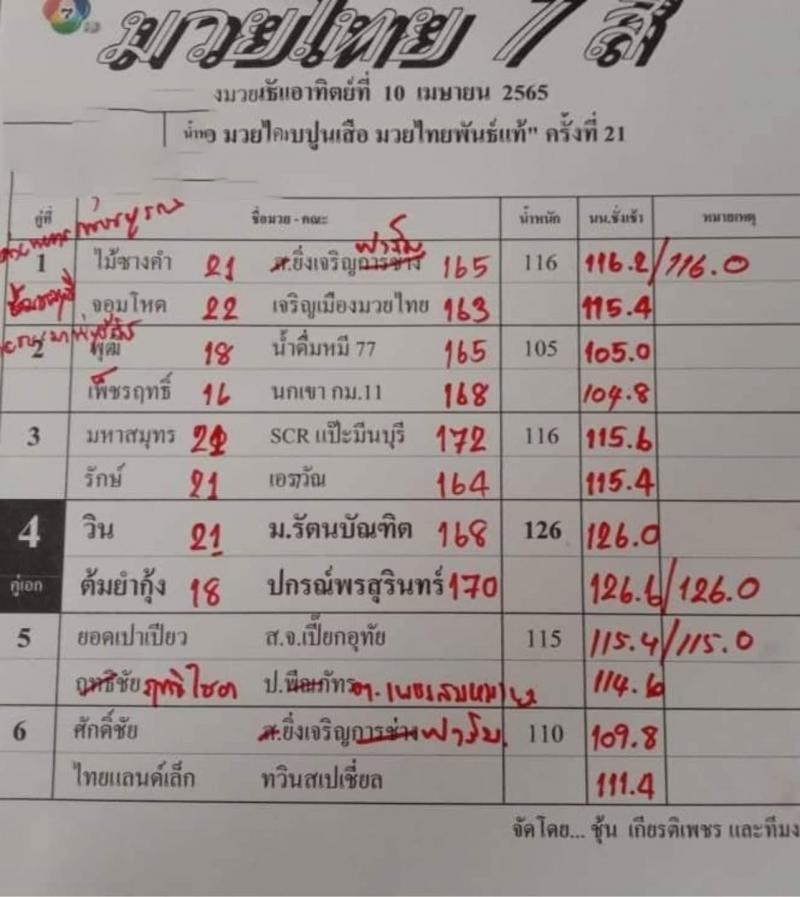 7
มวยไทย 7 สี
งมวยเธันอาทิตย์ที่ 10 เมษายน 2565
มวยไทยพันธ์แท้" ครั้งที่ 21
คู่ที่ ชื่อมวย - คณะ น้ำหนัก นน.ชั่งเช้า หมายเหตุ
ฟาร์ม
1 ไม้ซางคำ 21 ส.ยิ่งเจริญการช่าง 165 116 116.2/116.0
จอมโหด 22 เจริญเมืองมวยไทย 163 115.4
2 พุฒ 18 น้ำดื่มหมี 77 165 105 105.0
เพ็ชรฤทธิ์ 16 นกเขา กม.11 168 104.8
3 มหาสมุทร SCR แป๊ะมีนบุรี 172 116 115.6
รักษ์ 21 เอราวัณ 164 115.4
4 วิน 21 ม.รัตนบัณฑิต 168 126 126.0
คู่เอก ต้มยำกุ้ง 18 ปกรณ์พรสุรินทร์ 170 126.6/126.0
5 ยอดเปาเปียว ส.จ.เปี๊ยกอุทัย 115 115.4/115.0
ฤทธิชัย ฤทธิไชยา ป.พีณภัทร 114.6
6 ศักดิ์ชัย ส.ยิ่งเจริญการช่าง ฟาร์ม 110 109.8
ไทยแลนด์เล็ก ทวินสเปเชี่ยล 111.4
จัดโดย... ชุ้น เกียรติเพชร และทีมง